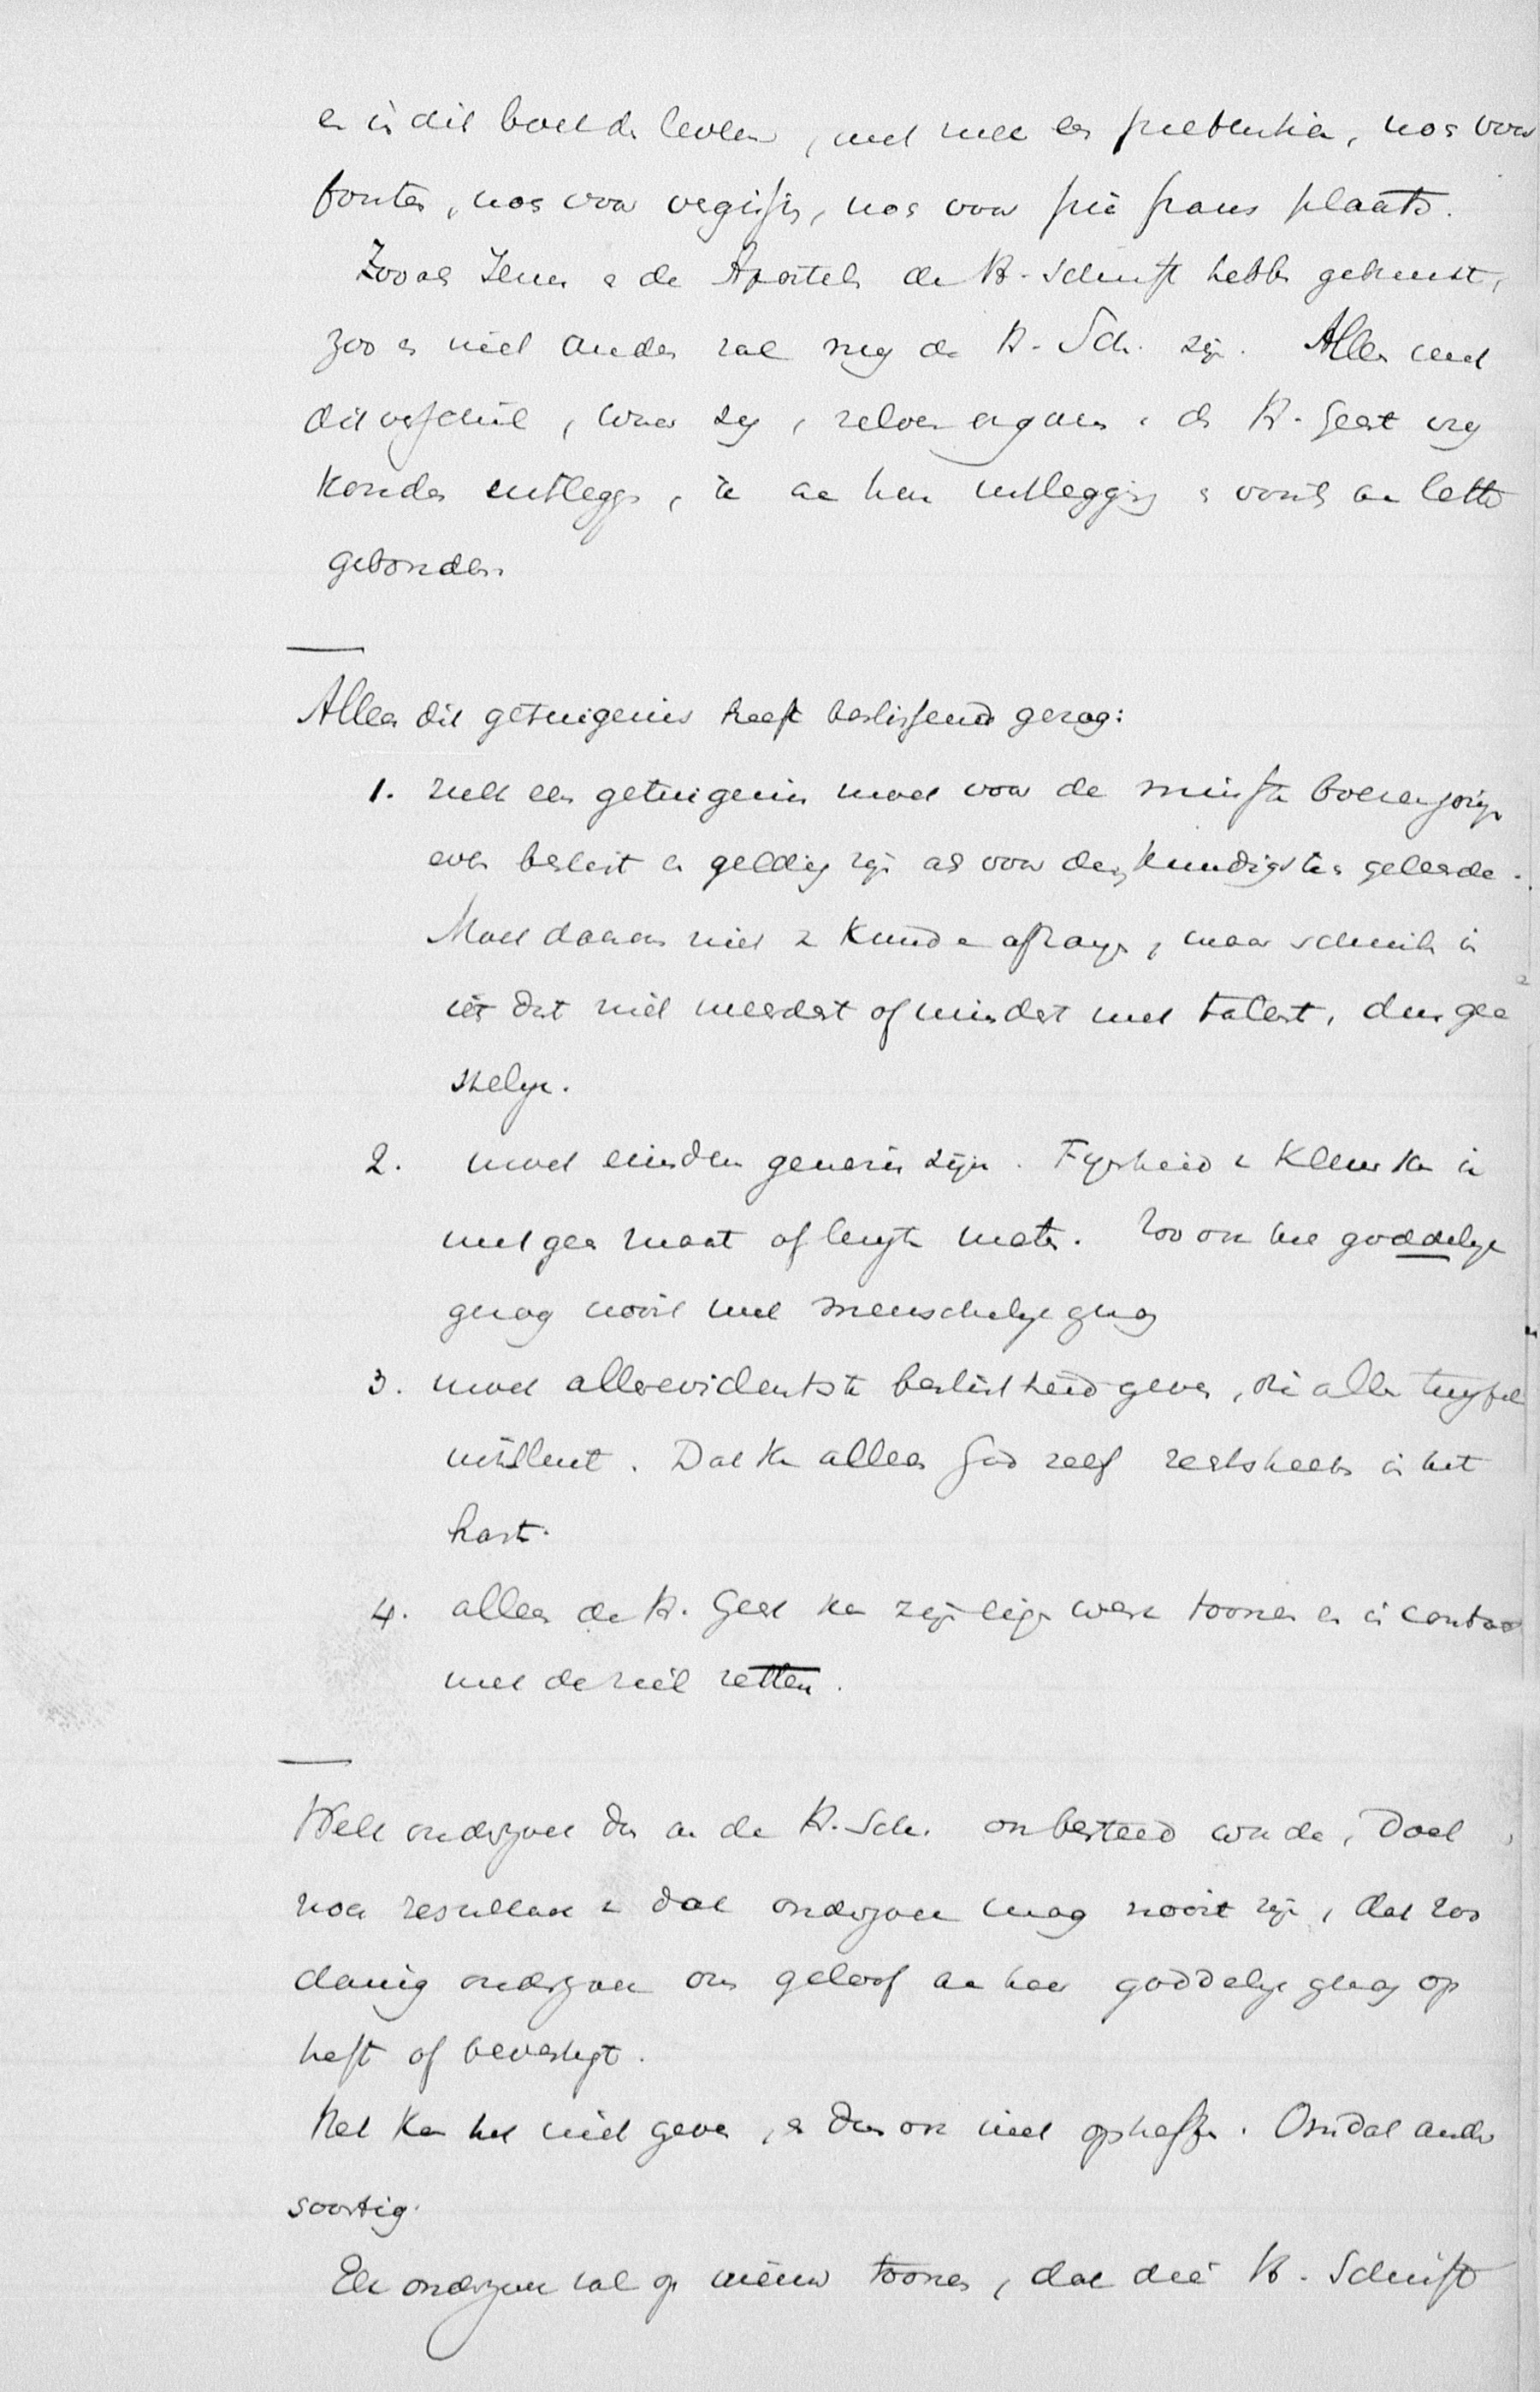 en in dit boek de leven, met zulk een pretentie, nog voor
fouten, nog voor vergissin, nog voor pia fraus plaats.
Zooals Jezus & de Apostelen de H. Schrift hebben gekend,
zoo en niet anders zal mij de H. Sch. zijn. Alleen met
dit verschil, waar zij, zelven organen v. d. H. Geest vrij
konden uitleggen, ik aan hun uitlegging & voorts aan letter
gebonden.
Alleen dit getuigenis heeft beslissend gezag:
1. zulk een getuigenis moet voor de minste boerenjongen
even beslist en geldig zijn als voor den kundigsten geleerde.
Moet daarom niet v. kunde afhangen, maar schuilen in
iets dat niet meerdert of mindert met talent, dus gee
stelijk.
2. moet eiusdem generis zijn. Fijnheid v. kleur kan ik
met geen maat of lengte meten. Zoo ook het goddelijk
gezag nooit met menschelijk gezag
3. moet allerevidentste beslistheid geven, die allen twijfel
uitsluit. Dat kan alleen God zelf rechtstreeks in het
hart.
4. alleen de H. Geest kan zijn eigen werk toonen en in contact
met de ziel zetten.
Welk onderzoek dus aan de H. Sch. ook besteed worde, doel
noch resultaat v. dat onderzoek mag nooit zijn, dat zoo
danig onderzoek ons geloof aan haar goddelijk gezag op
heft of bevestigt.
Het kan het niet geven, & dus ook niet opheffen. Omdat ander
soortig.
Elk onderzoek zal op nieuw toonen, dat die H. Schrift